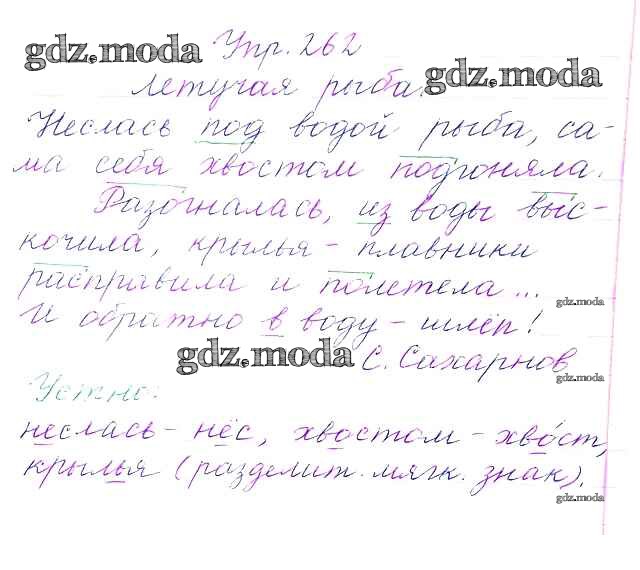 gdz.moda Упр. 262
летучая рыба. gdz.moda
Неслась под водой рыба, са-
ма себя хвостом подгоняла.
Разогналась, из воды выс-
кочила, крылья - плавники
расправила и полетела...
gdz.moda
И обратно в воду - шлёп!
gdz.moda С. Сахарнов
gdz.moda
Устно:
неслась - нёс, хвостом - хвост,
крылья (разделит. мягк. знак).
gdz.moda